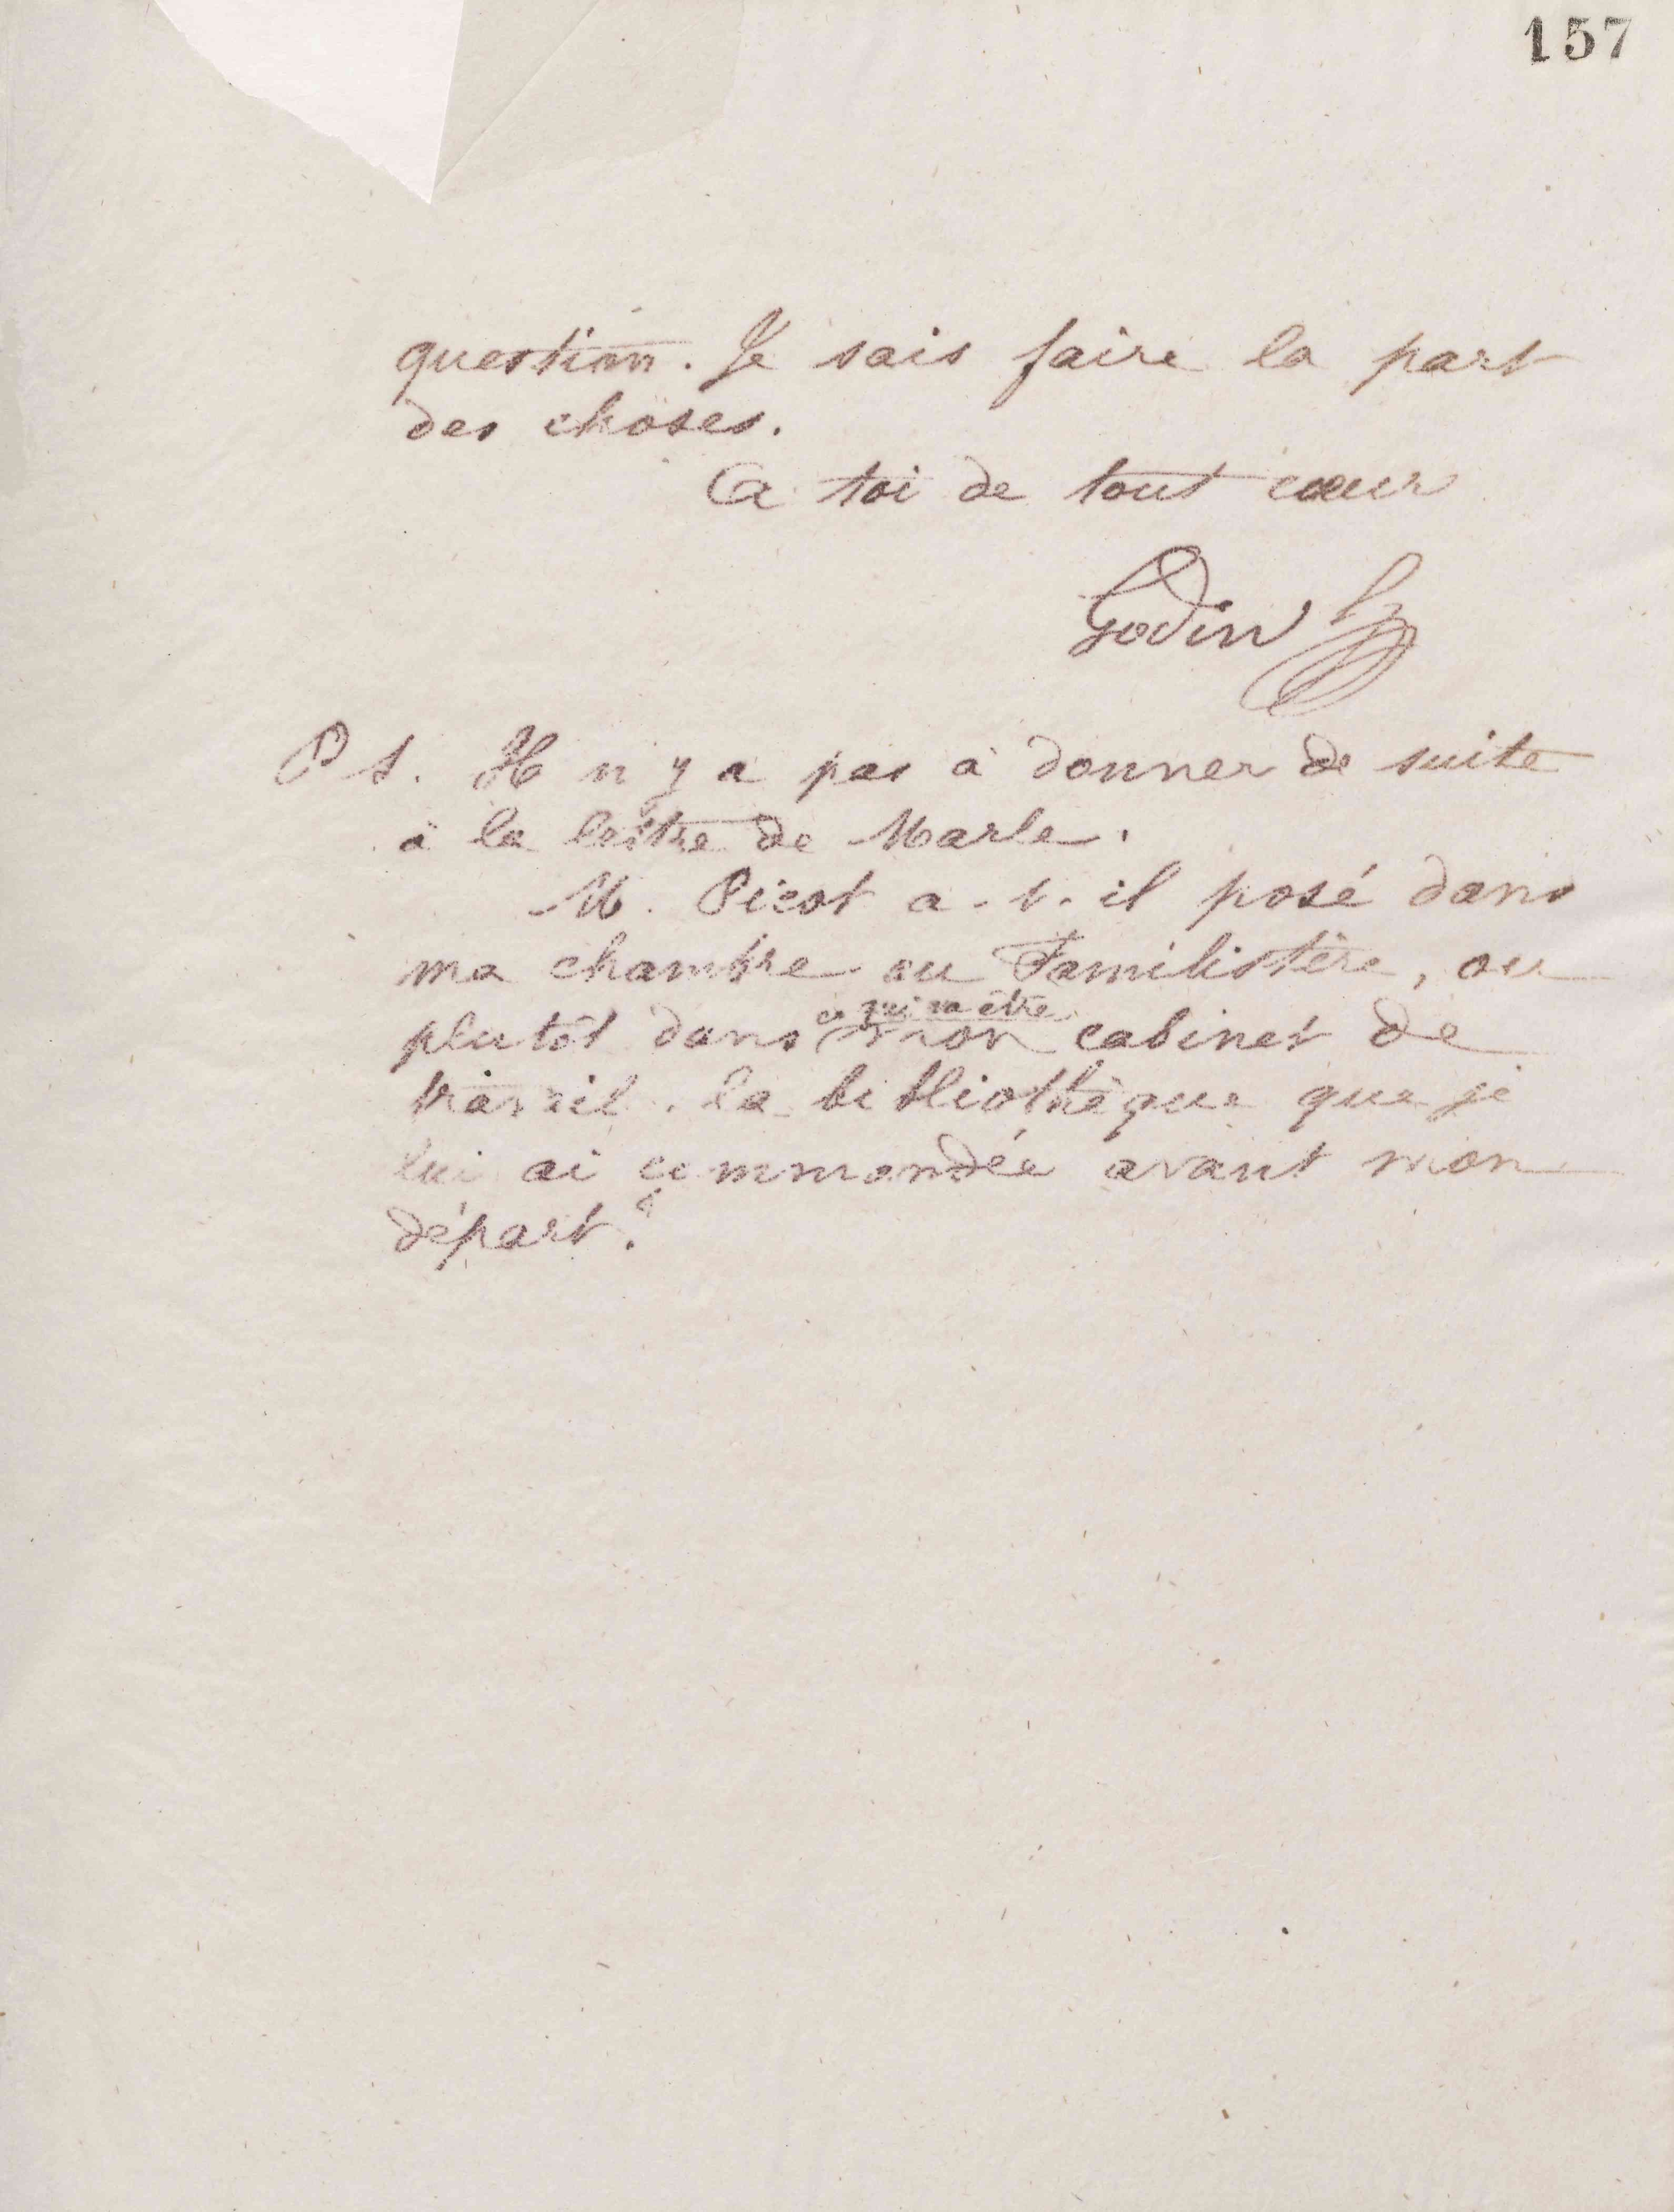 157
question. Je sais faire la part
des choses.
A toi de tout cœur
Godin
P S. Il n'y a pas à donner de suite
à la lettre de Marle.
M. Picot a-t-il posé dans
ma chambre au Familistère, ou
ce qui va être
plutôt dans mon cabinet de
travail. la bibliothèque que je
lui ai commandée avant mon
départ?